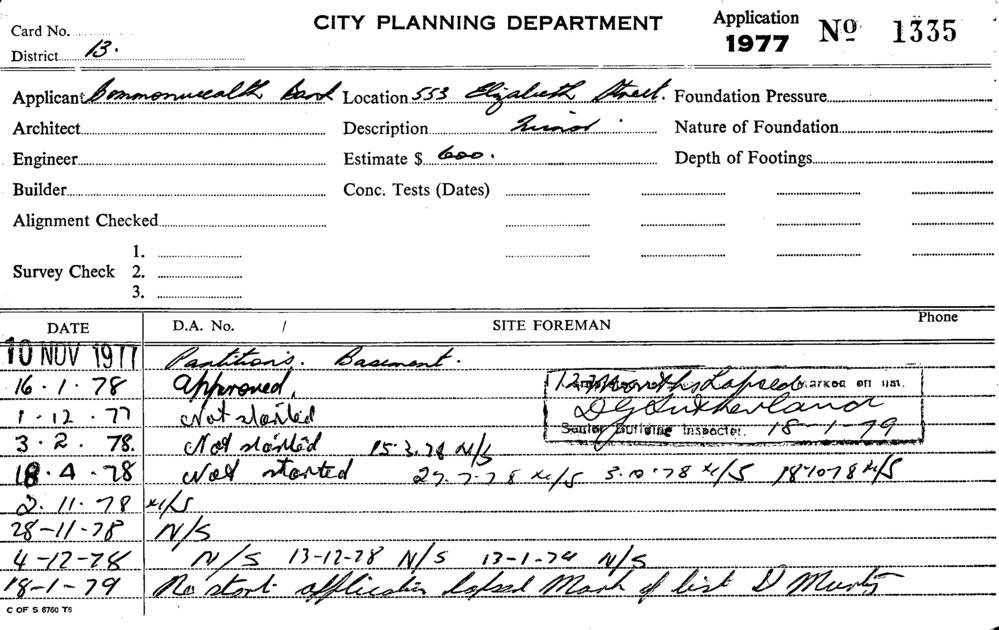 Card No.
District 13.
CITY PLANNING DEPARTMENT
Application
1977
Nº 1335
Applicant Commonwealth Bank Location 553 Elizabeth Street. Foundation Pressure
Architect Description Minor. Nature of Foundation
Engineer Estimate $ 600. Depth of Footings
Builder Conc. Tests (Dates)
Alignment Checked
1.
Survey Check 2.
3.
DATE D.A. No. / SITE FOREMAN Phone
10 NOV 1977 Partitions. Basement.
16.1.78 Approved.
1.12.77 Not started
3.2.78. Not started 15.3.78 N/S
18.4.78 Not started 27.7.78 N/S 3.10.78 N/S 18.10.78 N/S
2.11.78 N/S
28-11-78 N/S
4-12-78 N/S 13-12-78 N/S 13-1-79 N/S
18-1-79 No start application lapsed Mark of list D
12 Months Lapsed marked off list.
D G Sutherland
Senior Building Inspector. 18-1-79
C OF S 6760 T6